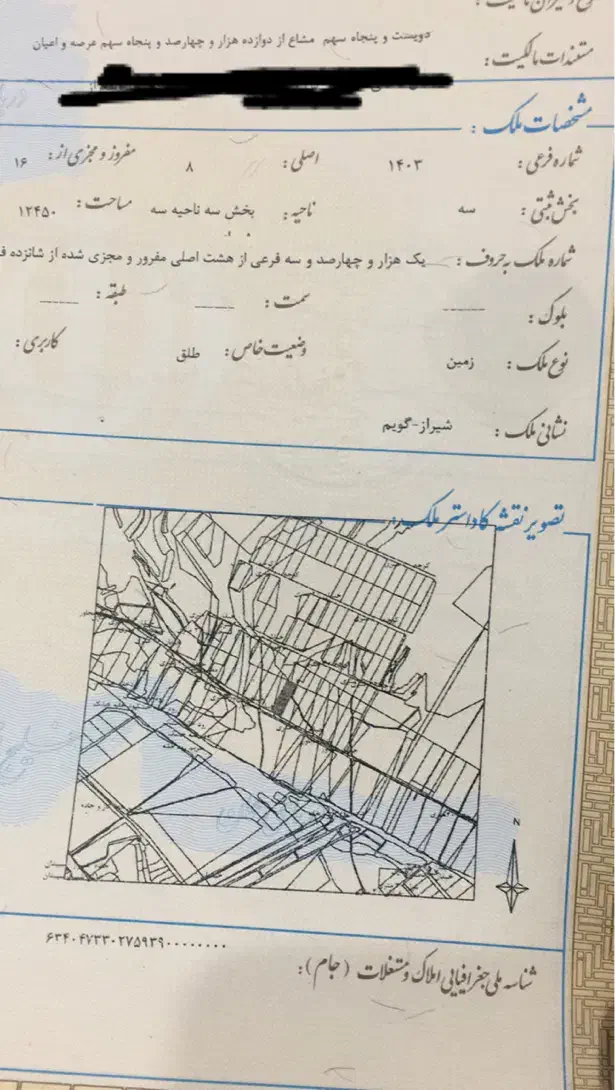 دویست و پنجاه سهم مشاع از دوازده هزار و چهارصد و پنجاه سهم عرصه و اعیان
مستندات مالکیت :
مشخصات ملک :
شماره فرعی : ۱۴۰۳ اصلی : ۸ مفروز و مجزی از : ۱۶
بخش ثبتی : سه ناحیه : بخش سه ناحیه سه مساحت : ۱۲۴۵۰
شماره ملک به حروف : یک هزار و چهارصد و سه فرعی از هشت اصلی مفرور و مجزی شده از شانزده
بلوک : سمت : طبقه :
نوع ملک : زمین وضعیت خاص : طلق کاربری :
نشانی ملک : شیراز-گویم
تصویر نقشه کاداستر ملک :
N
۶۳۴۰۴۷۳۳۰۲۷۵۹۳۹۰۰۰۰۰۰۰۰
شناسه ملی جغرافیایی املاک و مستغلات (جام) :